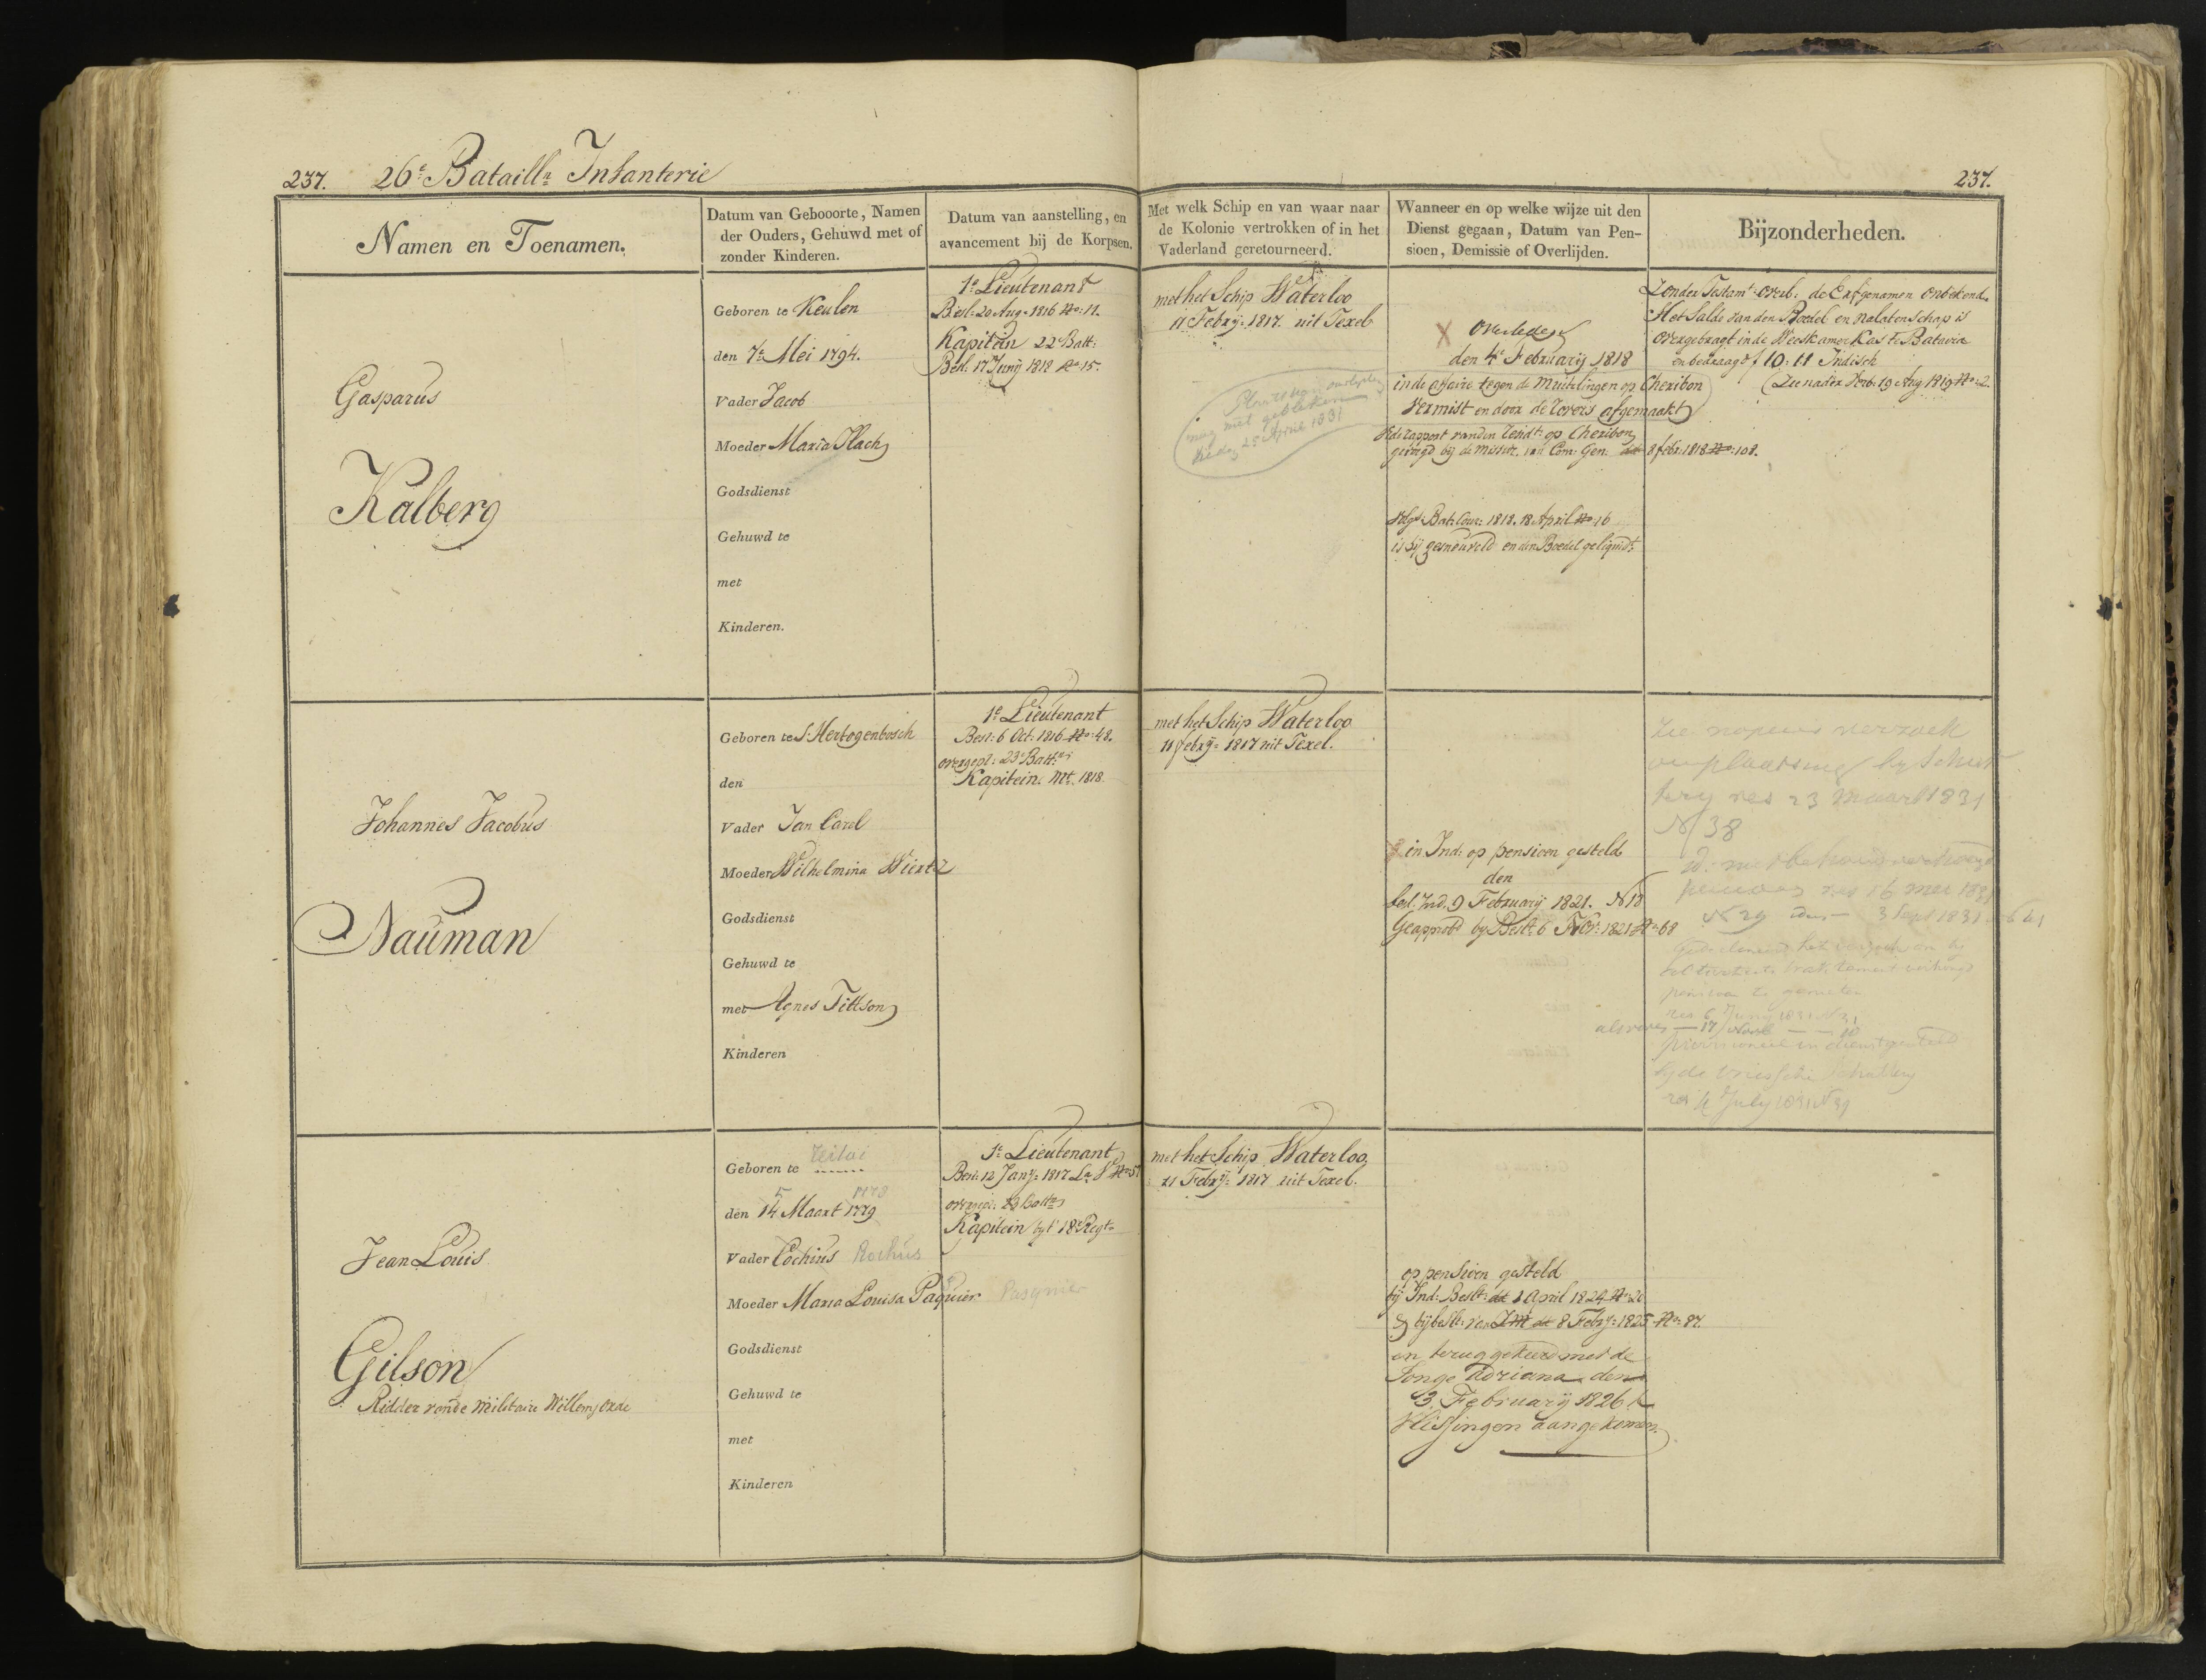 237. 26e Bataill.n Infanterie
237.
Namen en Toenamen.
Datum van Gebooorte, Namen
der Ouders, Gehuwd met of
zonder Kinderen.
Datum van aanstelling, en
avancement bij de Korpsen.
Met welk Schip en van waar naar
de Kolonie vertrokken of in het
Vaderland geretourneerd.
Wanneer en op welke wijze uit den
Dienst gegaan, Datum van Pen-
sioen, Demissie of Overlijden.
Bijzonderheden.
Gasparus
Kalberg
Geboren te Keulen
den 7e Mei 1794.
Vader Jacob
Moeder Maria Hach
Godsdienst
Gehuwd te
met
Kinderen.
1e Lieutenant
Besl: 20 Aug. 1816 No: 11.
Kapitein 22e Batt:
Besl. 17 Junij 1818 No 15.
met het Schip Waterloo
11 Febrij: 1817. uit Texel
25 April 1831
Overleden
den 4e Februarij 1818
in de affaire tegen de Muitelingen op Cheribon
Vermist en door de rovers afgemaakt
rapport van den Resid.t op Cheribon
gevoegd bij de missive van Com: Gen: dd 8 febr: 1818 No: 108.
Volgd: Bat: Cour: 1818. 18 April No 16
is hij gesneuveld en den Boedel geliquid.t
Zonder Testam.t overl: de Erfgenamen onbekend.
Het Saldo van den Boedel en nalatenschap is
overgebragt in de Weeskamer Kas te Batavia
en bedraagt f 10:11 Indisch
(Zie nader Verb. 19 Aug 1819 No: 2.
Johannes Jacobus
Nauman
Geboren te S. Hertogenbosch
den
Vader Jan Carel
Moeder Wilhelmina Wiertz
Godsdienst
Gehuwd te
met Agnes Tittson
Kinderen
1e Lieutenant
Besl: 6 Oct: 1816 No: 48.
overgepl: 23e Batt:
Kapitein. Mt. 1818.
met het Schip Waterloo
11 febrij: 1817 uit Texel.
in Ind: op pensioen gesteld
den
besl. Ind. 9 Februarij 1821. N 18
Geapprobd by Beslt: 6 Nov: 1821 No 68
Zie nopens verzoek
om plaatsing by Schut
tery res 23 Maart 1831
N 38
pensioen res 16 mei 1831
N 29 3 Sept 1831
pensioen te genieten
res 6 Juny 1831 N 31
17 Novb
res 4 July 1831 N 31
Jean Louis
Gilson
Ridder van de Militaire Willems Orde
Geboren te .......
5 1778
den 14 Maart 1779
Vader Cochius Rochus
Moeder Maria Louisa Paquier Pasquier
Godsdienst
Gehuwd te
met
Kinderen
1e Lieutenant
Besl: 12 Janij: 1817 No 57
overgepl: 23 Batt:n
Kapitein by t' 18e Regt:
met het Schip Waterloo
11 Febrij: 1817 uit Texel.
op pensioen gesteld
bij Ind: Beslt: dd 1 April 1824 No: 20
& bij beslt: van ZM dd 8 Febrij: 1825 No: 87.
en teruggekeerd met de
Jonge Adriana den
3 Februarij 1826 te
Vlissingen aangekomen.